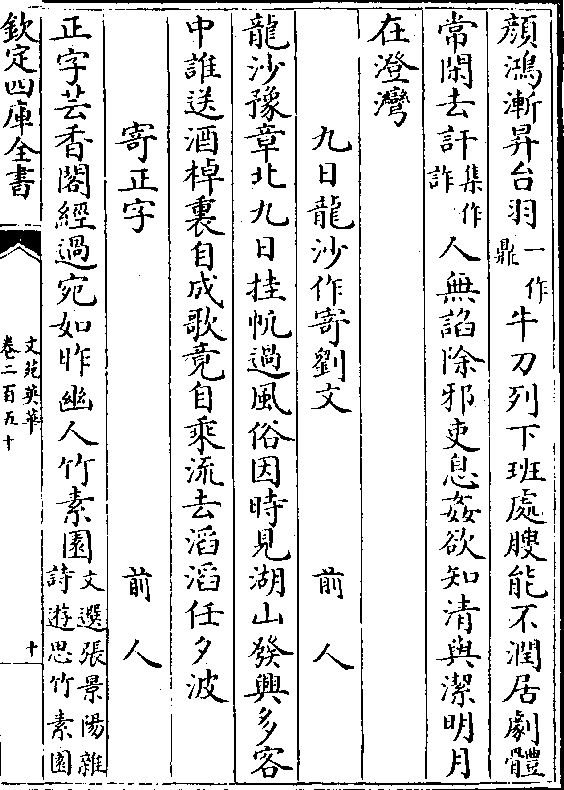 顔鴻漸昇台羽一作鼎牛刀列下班處腴能不潤居劇體
常閑去訐集作詐人無謟除邪吏息姦欲知清與潔明月
在澄灣
九日龍沙作寄劉文　前人
龍沙豫章北九日挂帆過風俗因時見湖山發興多客
中誰送酒棹裏自成歌竟自乘流去滔滔任夕波
寄正字　前人
正字芸香閣經過宛如昨幽人竹素園文選張景陽雜詩遊思竹素園
欽定四庫全書
文苑英華
卷二百五十
十